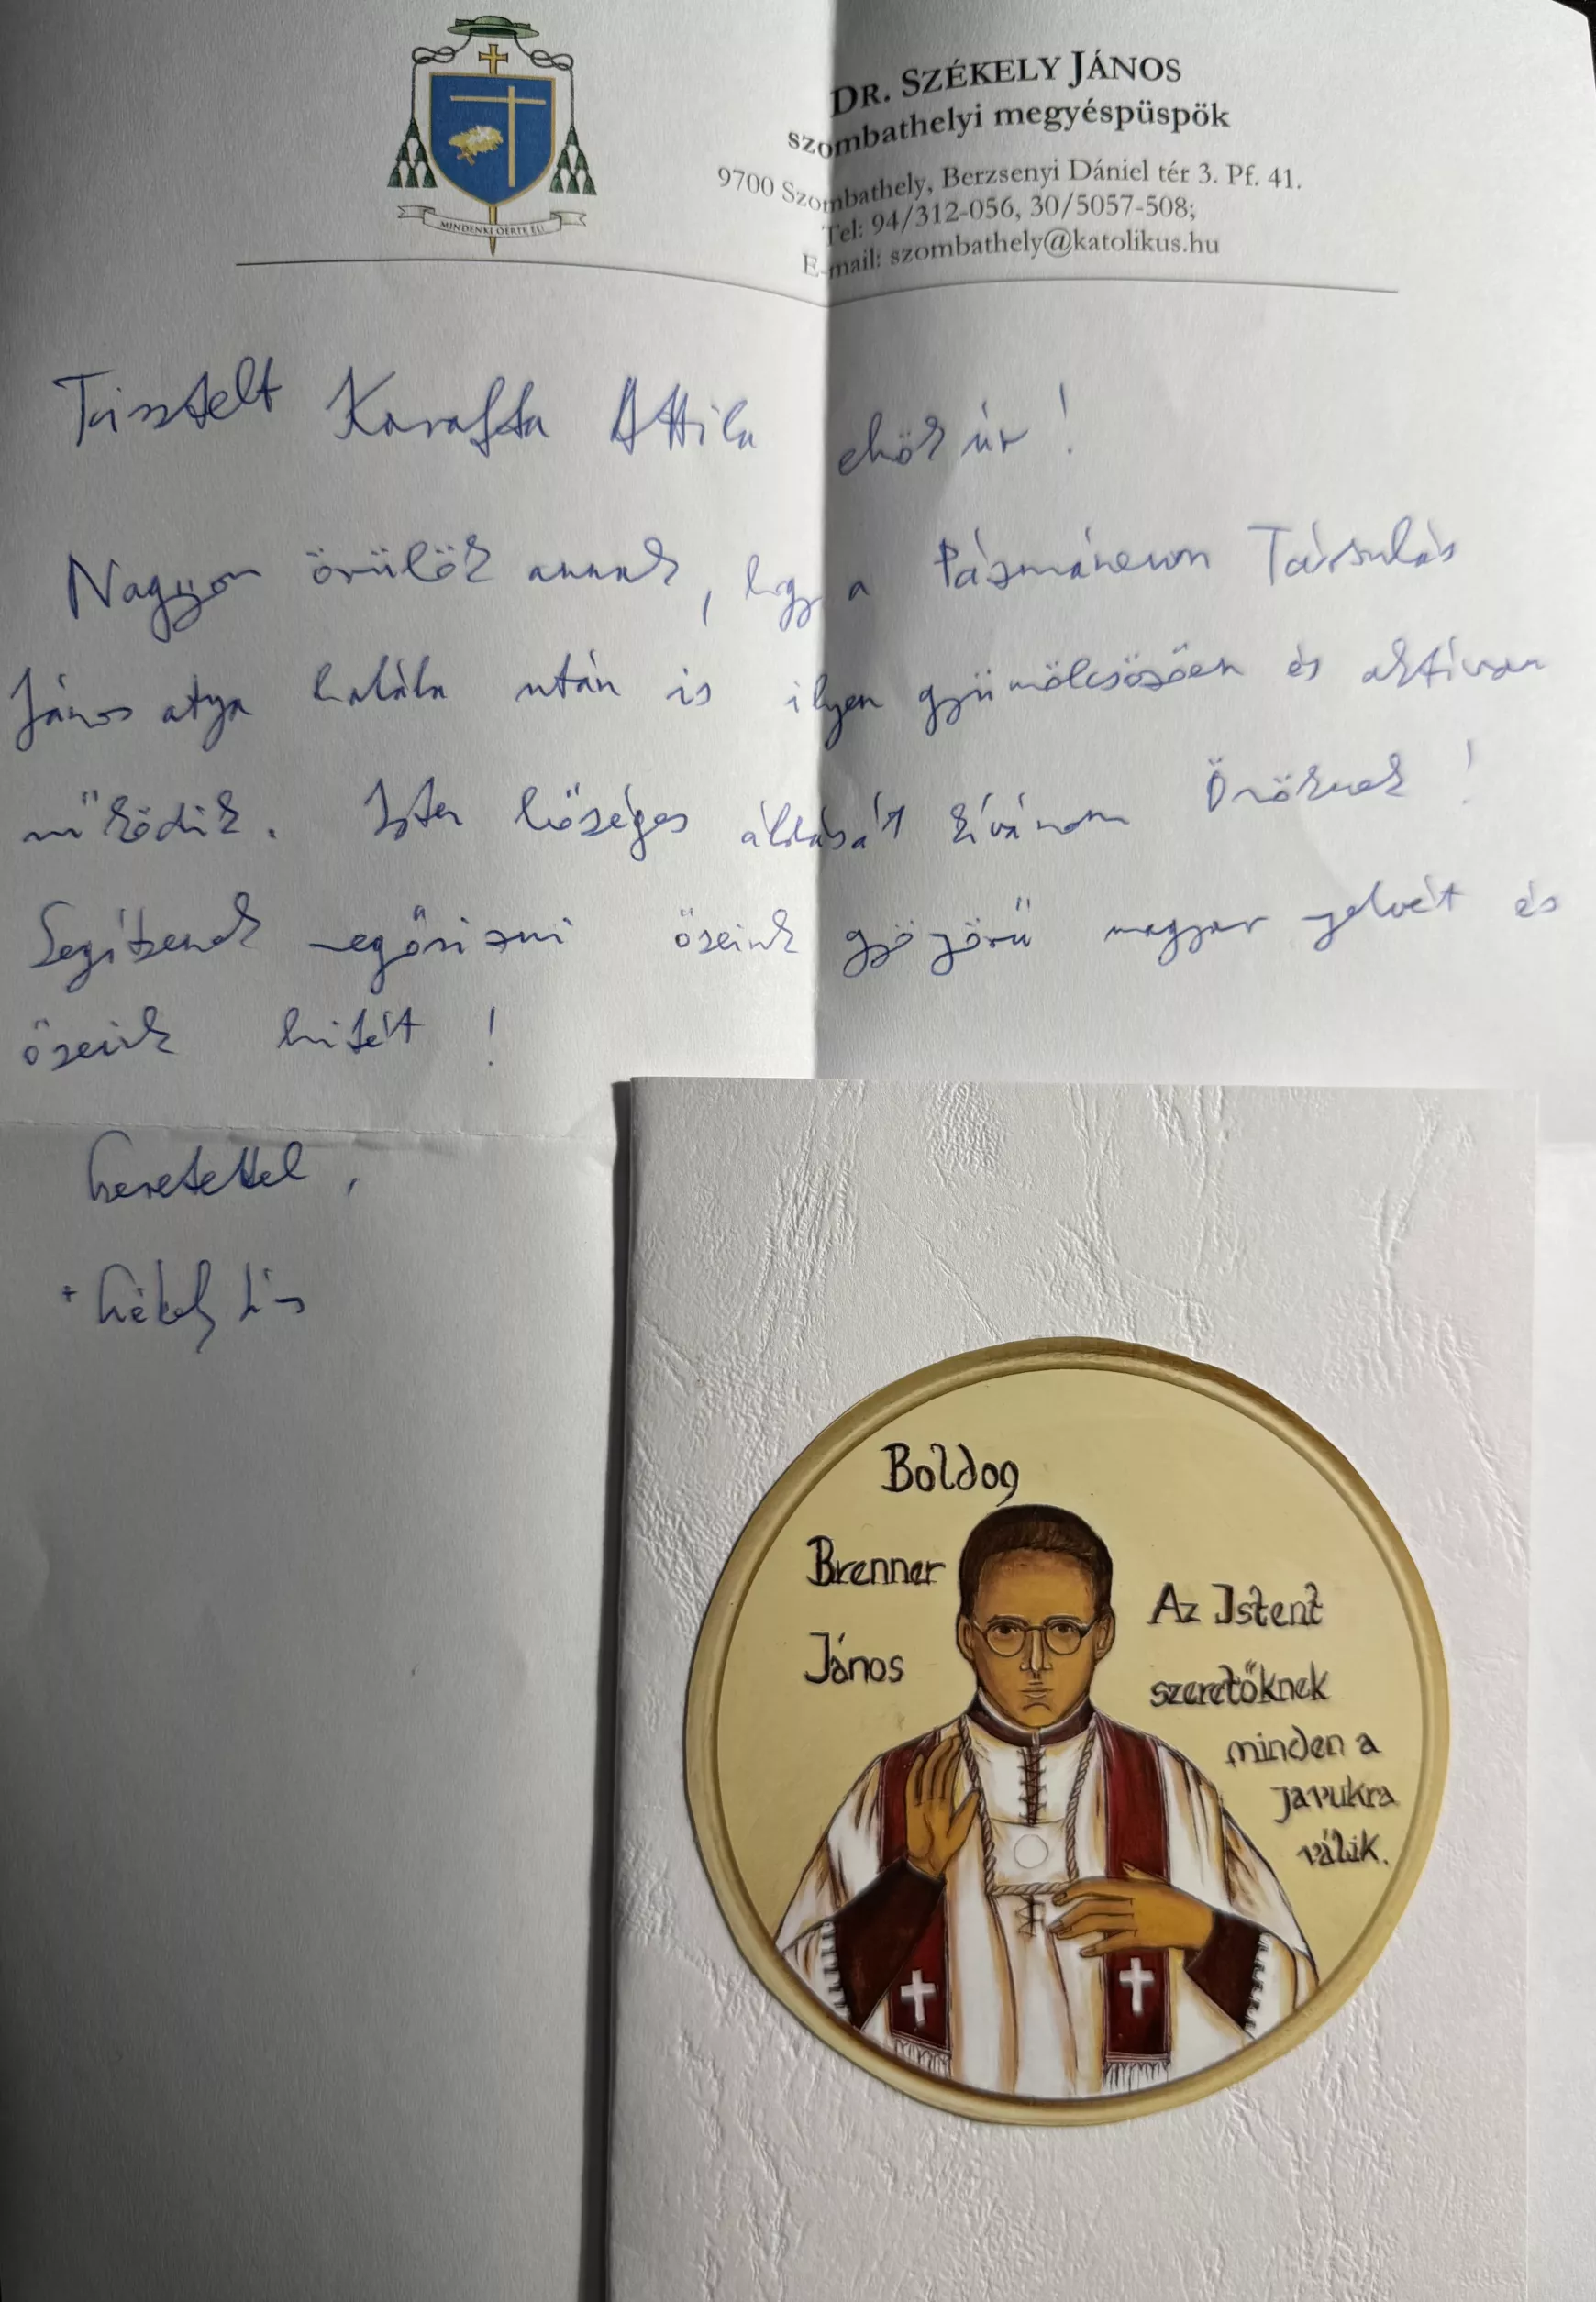 MINDENKI ŐÉRTE ÉL!
DR. SZÉKELY JÁNOS
szombathelyi megyéspüspök
9700 Szombathely, Berzsenyi Dániel tér 3. Pf. 41.
Tel: 94/312-056, 30/5057-508;
E-mail: szombathely@katolikus.hu
Tisztelt Karaffa Attila elnök úr!
Nagyon örülök annak, hogy a Pázmáneum Társulás
János atya halála után is ilyen gyümölcsözően és aktívan
működik. Isten bőséges áldását kívánom Önöknek!
Segítsenek megőrizni őseink gyönyörű magyar nyelvét és
őseink hitét!
Szeretettel,
+ Székely János
Boldog
Brenner
János
Az Istent
szeretőknek
minden a
javukra
válik.